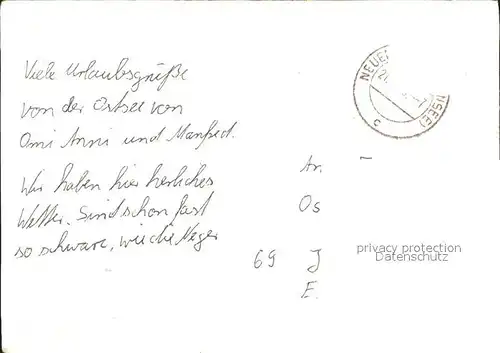 Viele Urlaubsgrüße
von der Ostsee von
Omi Anni und Manfred.
Wir haben hier herliches
Wetter. Sind schon fast
so schwarz, wie die Neger
NEUE
21
-7
NSEE)
c
An
Os
69 J
E.
privacy protection
Datenschutz